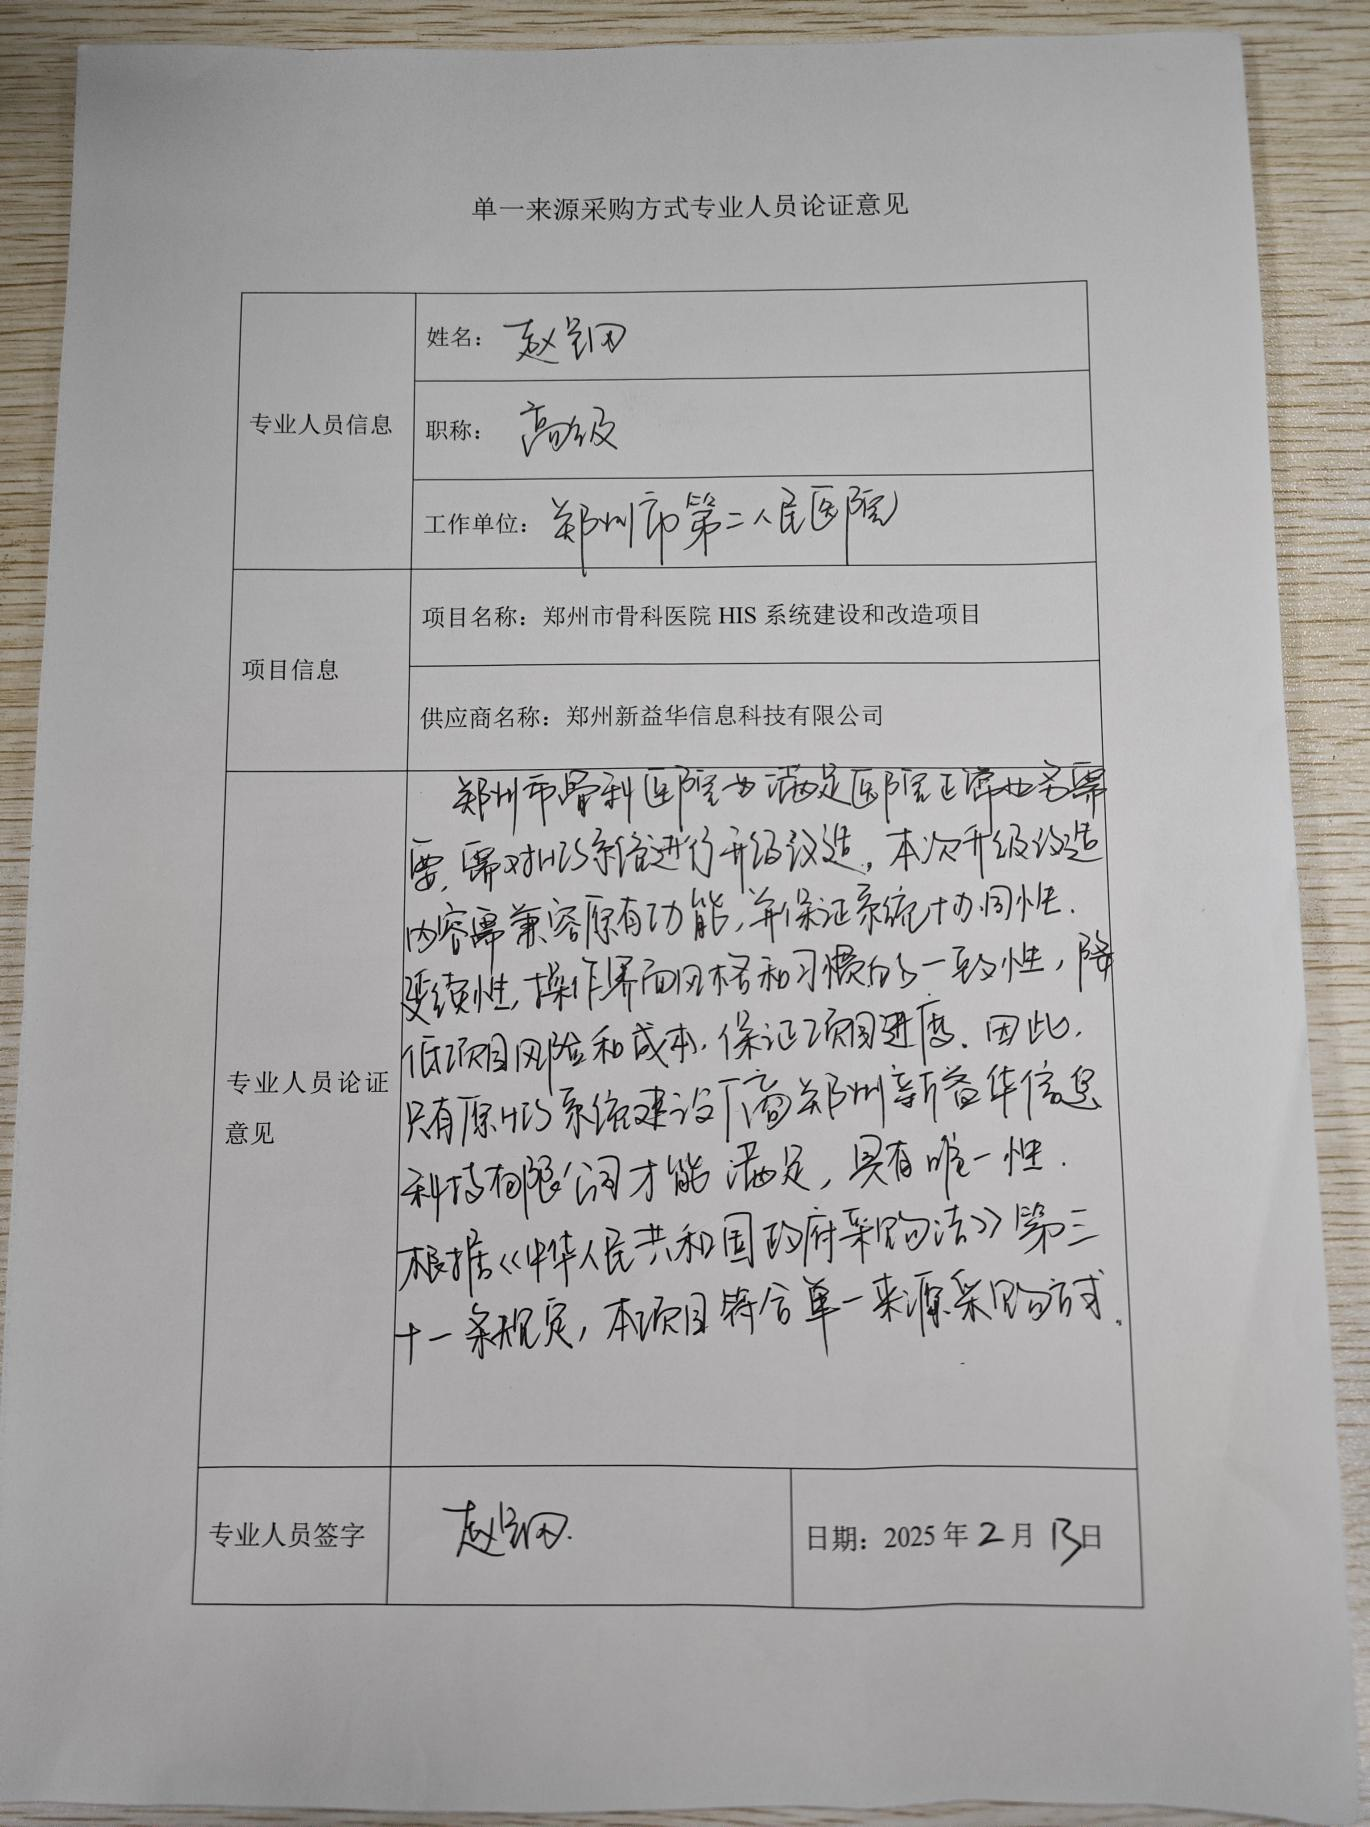 单一来源采购方式专业人员论证意见
专业人员信息
姓名：赵
职称：高级
工作单位：郑州市第二人民医院
项目信息
项目名称：郑州市骨科医院 HIS 系统建设和改造项目
供应商名称：郑州新益华信息科技有限公司
专业人员论证
意见
郑州市骨科医院为满足医院正常业务需
要，需对HIS系统进行升级改造。本次升级改造
内容需兼容原有功能，并保证系统协同性.
延续性，操作界面风格和习惯的一致性，降
低项目风险和成本，保证项目进度。因此，
只有原HIS系统建设厂商郑州新益华信息
科技有限公司才能满足，具有唯一性.
根据《中华人民共和国政府采购法》第三
十一条规定，本项目符合单一来源采购方式.
专业人员签字
赵
日期：2025 年 2 月 13 日